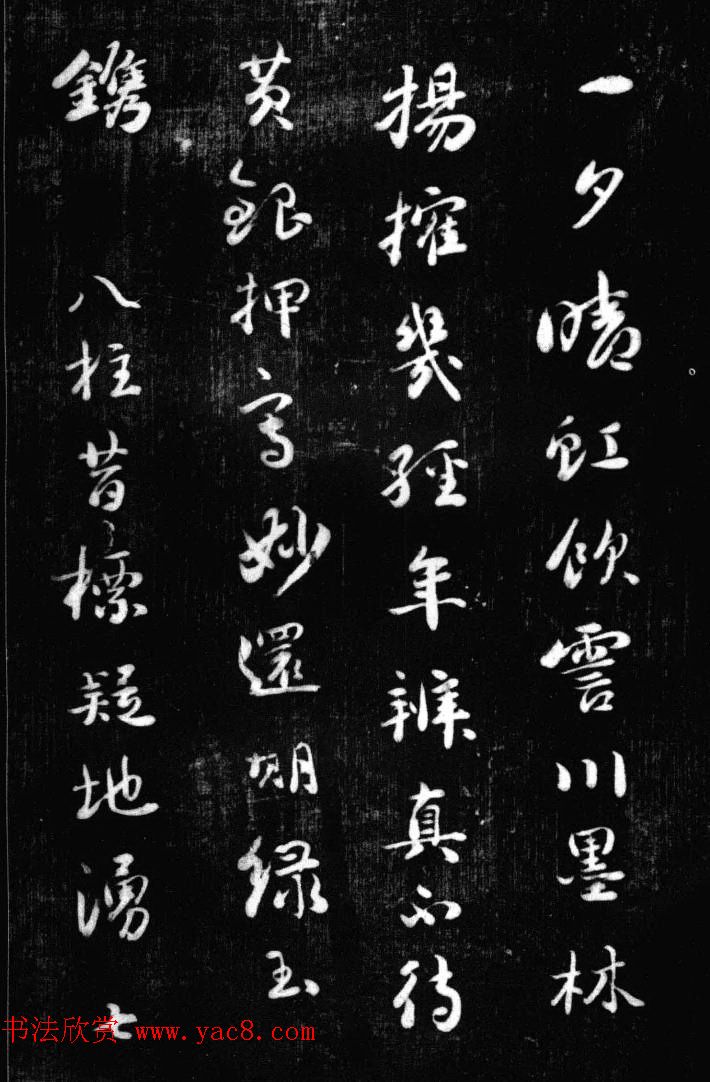 一夕晴虹飲霅川墨林
揚搉幾經年辨真不待
黃銀押寫妙還期綠玉
鐫 八柱昔標疑地湧七
书法欣赏 www.yac8.com